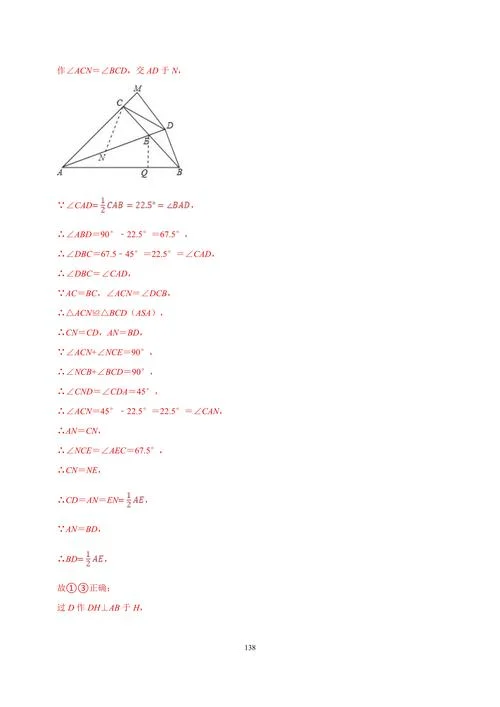 作∠ACN＝∠BCD，交 AD 于 N，
M
C
D
E
N
A
Q
B
∵∠CAD=1/2 CAB = 22.5° = ∠BAD，
∴∠ABD＝90°﹣22.5°＝67.5°，
∴∠DBC＝67.5﹣45°＝22.5°＝∠CAD，
∴∠DBC＝∠CAD，
∵AC＝BC，∠ACN＝∠DCB，
∴△ACN≌△BCD（ASA），
∴CN＝CD，AN＝BD，
∵∠ACN+∠NCE＝90°，
∴∠NCB+∠BCD＝90°，
∴∠CND＝∠CDA＝45°，
∴∠ACN＝45°﹣22.5°＝22.5°＝∠CAN，
∴AN＝CN，
∴∠NCE＝∠AEC＝67.5°，
∴CN＝NE，
∴CD＝AN＝EN=1/2 AE，
∵AN＝BD，
∴BD=1/2 AE，
故①③正确；
过 D 作 DH⊥AB 于 H，
138